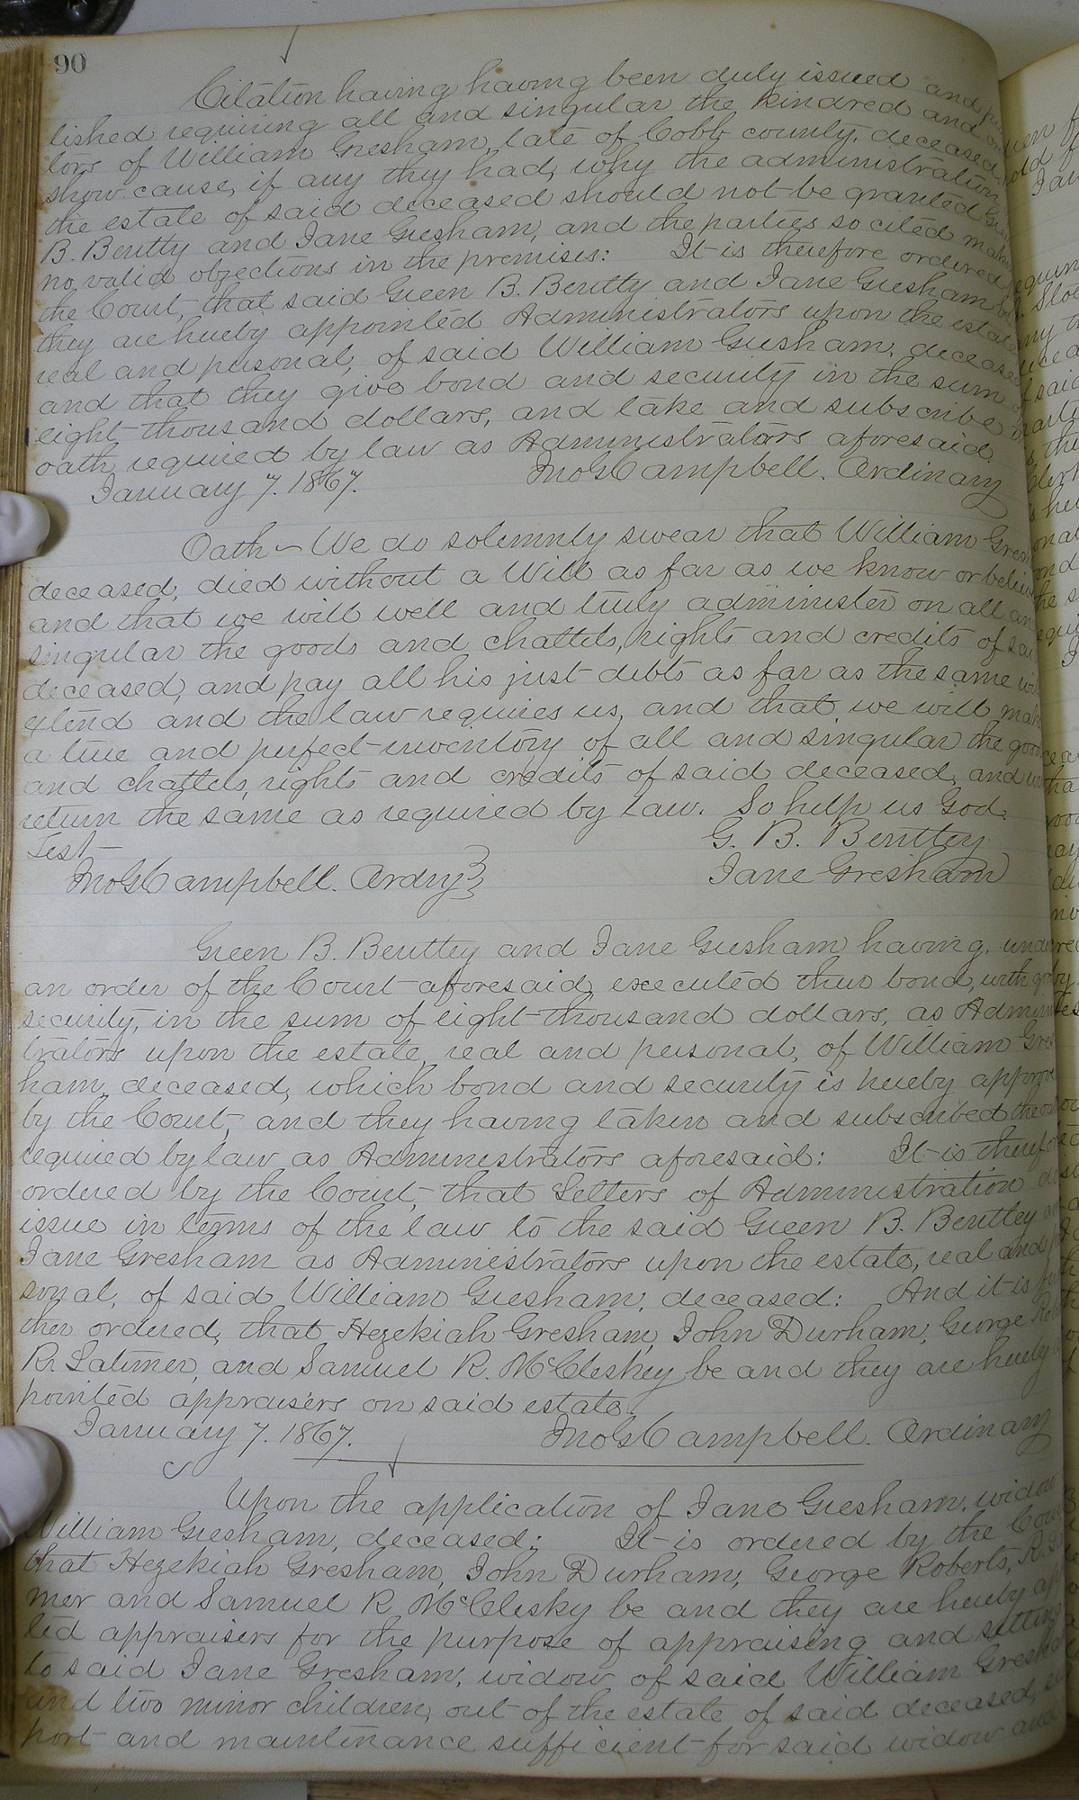 90
Citation having having been duly issued and pub
lished requiring all and singular the kindred and
tors of William Gresham, late of Cobb county, deceased,
show cause, if any they had, why the administration
the estate of said deceased should not be granted Green
B. Bentley and Jane Gresham, and the parties so cited making
no valid objections in the premises: It is therefore ordered
the Court, that said Green B. Bentley and Jane Gresham be
they are hereby appointed Administrators upon the estate
real and personal, of said William Gresham, deceased
and that they give bond and security in the sum of
eight thousand dollars, and take and subscribe
oath required by law as Administrators aforesaid.
January 7. 1867. Jno G Campbell. Ordinary
Oath - We do solemnly swear that William Gres
deceased, died without a Will as far as we know or believe
and that we will well and truly administer on all an
singular the goods and chattels, rights and credits of said
deceased, and pay all his just debts as far as the same will
extend and the law requires us, and that we will make
a true and perfect inventory of all and singular the goods
and chattels, rights and credits of said deceased, and
return the same as required by law. So help us God.
Test G. B. Bentley
Jno G Campbell. Ordry Jane Gresham
Green B. Bentley and Jane Gresham having, under
an order of the Court aforesaid, executed their bond, with good
security, in the sum of eight thousand dollars, as Adminis
trators upon the estate, real and personal, of William Gres
ham, deceased, which bond and security is hereby approved
by the Court, and they having taken and subscribed the oath
required by law as Administrators aforesaid: It is therefore
ordered by the Court, that Letters of Administration do
issue in terms of the law to the said Green B. Bentley and
Jane Gresham as Administrators upon the estate, real and per
sonal, of said William Gresham, deceased: And it is fur
ther ordered, that Hezekiah Gresham, John Durham, George Rob
R. Latimer, and Samuel R. McCleskey be and they are hereby ap
pointed appraisers on said estate.
January 7. 1867. Jno G Campbell. Ordinary
Upon the application of Jane Gresham, widow
William Gresham, deceased; It is ordered by the Court
that Hezekiah Gresham, John Durham, George Roberts, R. Lati
mer and Samuel R. McClesky be and they are hereby ap
ted appraisers for the purpose of appraising and setting
to said Jane Gresham, widow of said William Gresham
and two minor children, out of the estate of said deceased, sup
port and maintenance sufficient for said widow and